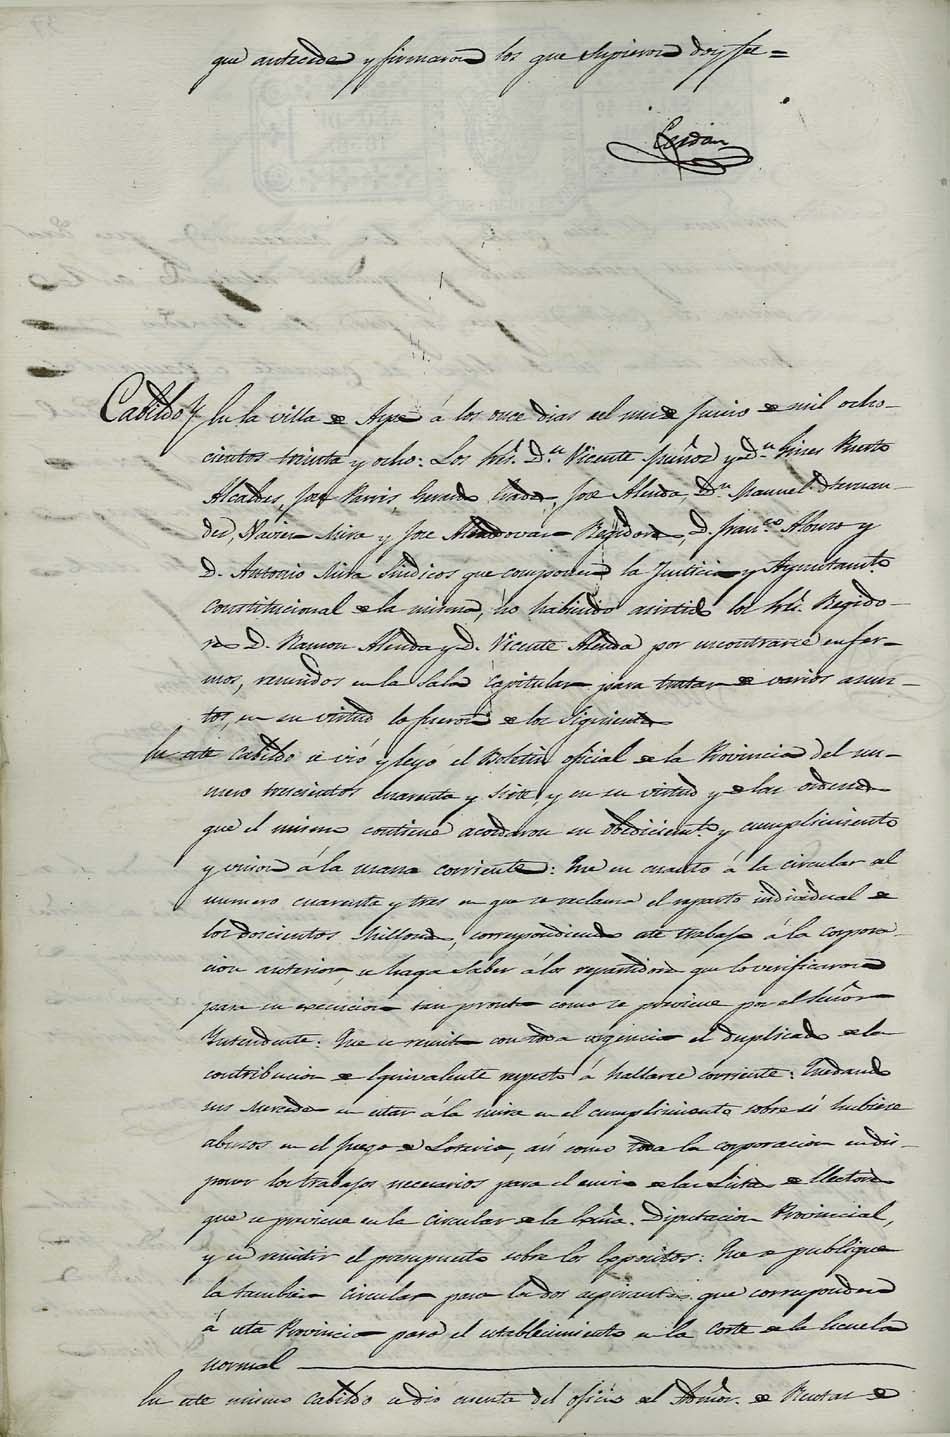 que antecede y firmaron los que supieron doy fe =
Cerdán
Cabildo // En la villa de Aspe á los once dias del mes de Junio de mil ocho-
cientos treinta y ocho: Los Srẽs. D.n Vicente y D.n Gines Puerto
Alcaldes, José Pavia, Gerardo, José Alenda, D.n Manuel Hernan-
dez, Xavier Mira y José Almodovar Regidores, D. Fran.co Alburo y
D. Antonio Mira Sindicos que componen la Justicia y Ayuntam.to
Constitucional de la misma, no habiendo asistido los Srẽs. Regido-
res D. Ramon Alenda y D. Vicente Alenda por encontrarse enfer-
mos, reunidos en la Sala Capitular para tratar de varios asun-
tos, en su virtud lo fueron de los siguientes
En este Cabildo se vió y leyó el Boletin oficial de la Provincia del nu-
mero trescientos cuarenta y siete y en su virtud y de las ordenes
que el mismo contiene acordaron su obedecimt.o y cumplimiento
y union á la mano corriente: Que en cuanto á la circular del
numero cuarenta y tres en que se reclama el reparto individual de
los doscientos Millones, correspondiendo este trabajo á la corpora-
cion anterior, se haga saber á los repartidores que lo verificaron
para su execucion tan pronto como se previene por el Señor
Intendente: Que se remita con toda urgencia el duplicado de la
contribucion de Equivalente respecto á hallarse corriente: Quedando
sus Mercedes en estar á la mira en el cumplimiento sobre si hubiese
abusos en el Juego de Loteria, asi como toda la corporacion en dis-
poner los trabajos necesarios para el envio de las Listas de Electores
que se previene en la circular de la Excma. Diputacion Provincial,
y en remitir el presupuesto sobre los Expositos: Que se publique
la tambien circular para los dos aspirantes que corresponden
á esta Provincia para el establecimiento en la Corte de la Escuela
normal
En este mismo Cabildo se dió cuenta del oficio del Admõr. de Rentas de